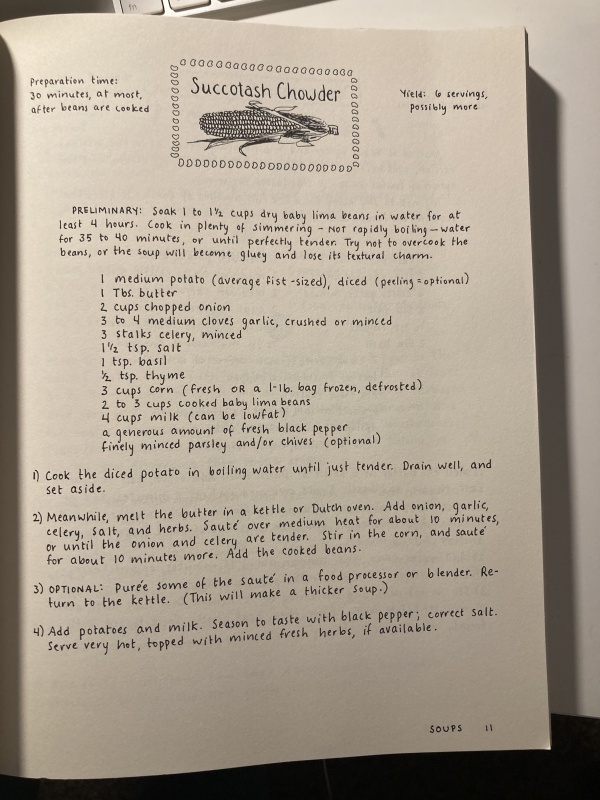 fn
Preparation time:
30 minutes, at most,
after beans are cooked
Succotash Chowder
Yield: 6 servings,
possibly more
PRELIMINARY: Soak 1 to 1½ cups dry baby lima beans in water for at
least 4 hours. Cook in plenty of simmering - NOT rapidly boiling - water
for 35 to 40 minutes, or until perfectly tender. Try not to overcook the
beans, or the soup will become gluey and lose its textural charm.
1 medium potato (average fist-sized), diced (peeling = optional)
1 Tbs. butter
2 cups chopped onion
3 to 4 medium cloves garlic, crushed or minced
3 stalks celery, minced
1½ tsp. salt
1 tsp. basil
½ tsp. thyme
3 cups corn (fresh OR a 1-lb. bag frozen, defrosted)
2 to 3 cups cooked baby lima beans
4 cups milk (can be lowfat)
a generous amount of fresh black pepper
finely minced parsley and/or chives (optional)
1) Cook the diced potato in boiling water until just tender. Drain well, and
set aside.
2) Meanwhile, melt the butter in a kettle or Dutch oven. Add onion, garlic,
celery, salt, and herbs. Sauté over medium heat for about 10 minutes,
or until the onion and celery are tender. Stir in the corn, and sauté
for about 10 minutes more. Add the cooked beans.
3) OPTIONAL: Purée some of the sauté in a food processor or blender. Re-
turn to the kettle. (This will make a thicker soup.)
4) Add potatoes and milk. Season to taste with black pepper; correct salt.
Serve very hot, topped with minced fresh herbs, if available.
SOUPS 11